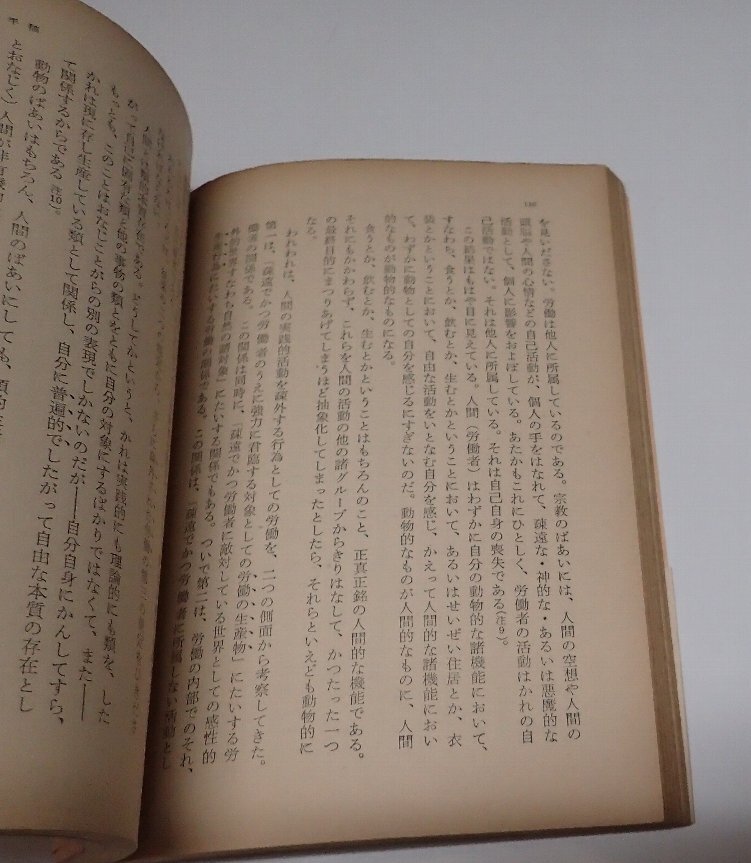 を見いださない。労働は他人に所属しているのである。宗教のばあいには、人間の空想や人間の
頭脳や人間の心情などの自己活動が、個人の手をはなれて、疎遠な・神的な・あるいは悪魔的な
活動として、個人に影響をおよぼしている。あたかもこれにひとしく、労働者の活動はかれの自
己活動ではない。それは他人に所属している。それは自己自身の喪失である(注9)。
この結果はもはや目に見えている。人間(労働者)はわずかに自分の動物的な諸機能において、
すなわち、食うとか、飲むとか、生むとかということにおいて、あるいはせいぜい住居とか、衣
装とかということにおいて、自由な活動をいとなむ自分を感じ、かえって人間的な諸機能におい
て、わずかに動物としての自分を感じるにすぎないのだ。動物的なものが人間的なものに、人間
的なものが動物的なものになる。
食うとか、飲むとか、生むとかということはもちろんのこと、正真正銘の人間的な機能である。
それにもかかわらず、これらを人間の活動の他の諸グループからきりはなして、かつたった一つ
の最終目的にまつりあげてしまうほど抽象化してしまったとしたら、それらといえども動物的に
なる。
われわれは、人間の実践的活動を疎外する行為としての労働を、二つの側面から考察してきた。
第一は、「疎遠でかつ労働者のうえに強力に君臨する対象としての労働の生産物」にたいする労
働者の関係である。この関係は同時に、「疎遠でかつ労働者に敵対している世界としての感性的
外的世界すなわち自然の諸対象」にたいする関係でもある。ついで第二は、労働の内部でのそれ、
にたいする労働の関係である。この関係は、「疎遠でかつ労働者に所属しない活動とし
手稿
人間は類的本質存在である。どうしてかというと、かれは実践的にも理論的にも類を、した
がって自己に固有な類と他の事物の類とをともに自分の対象にするばかりではなくて、また——
もっとも、このことはおなじことがらの別の表現でしかないのだが——自分自身にかんしてすら、
かれは現に存し生産している類として関係し、自分に普遍的でしたがって自由な本質の存在とし
て関係するからである(注10)。
動物のばあいはもちろん、人間のばあいにしても、類的
とおなじく)人間が非有機